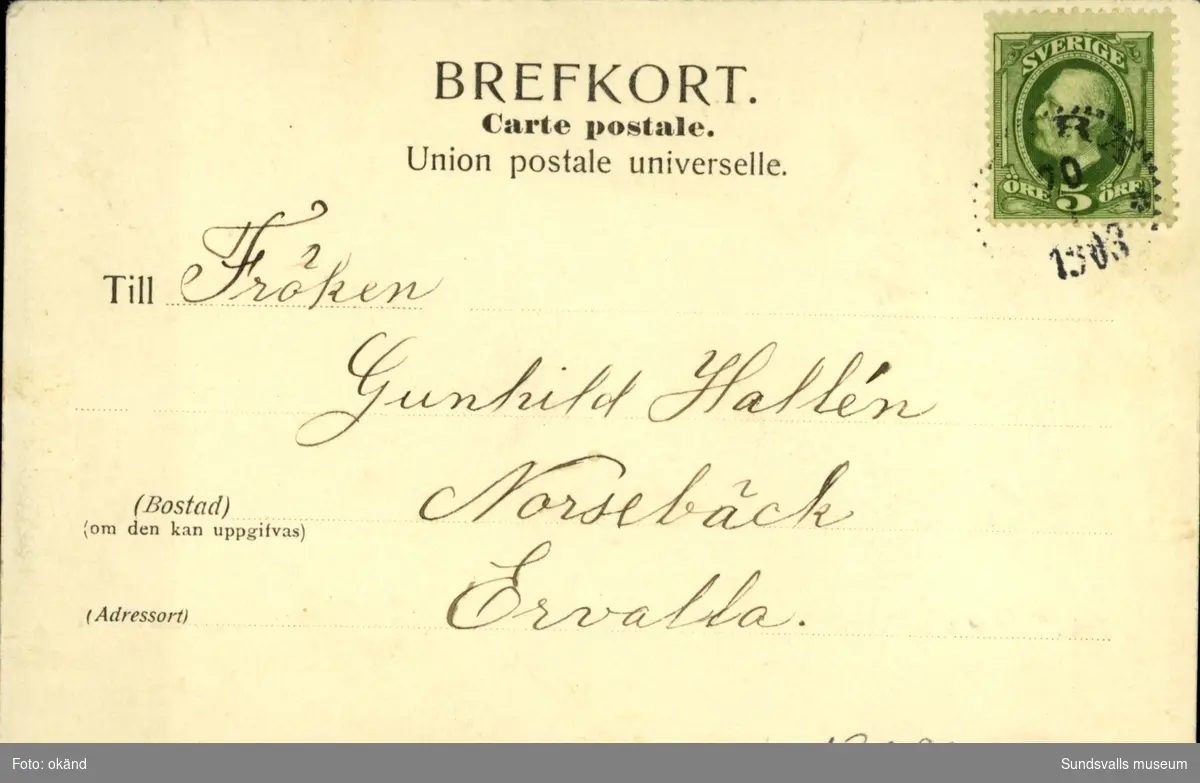 BREFKORT.
Carte postale.
Union postale universelle.
SVERIGE
ÖRE 5 ÖRE
10
1903
Till Fröken
Gunhild Hallén
(Bostad) Norsebäck
(om den kan uppgifvas)
(Adressort) Ervalla.
Foto: okänd
Sundsvalls museum